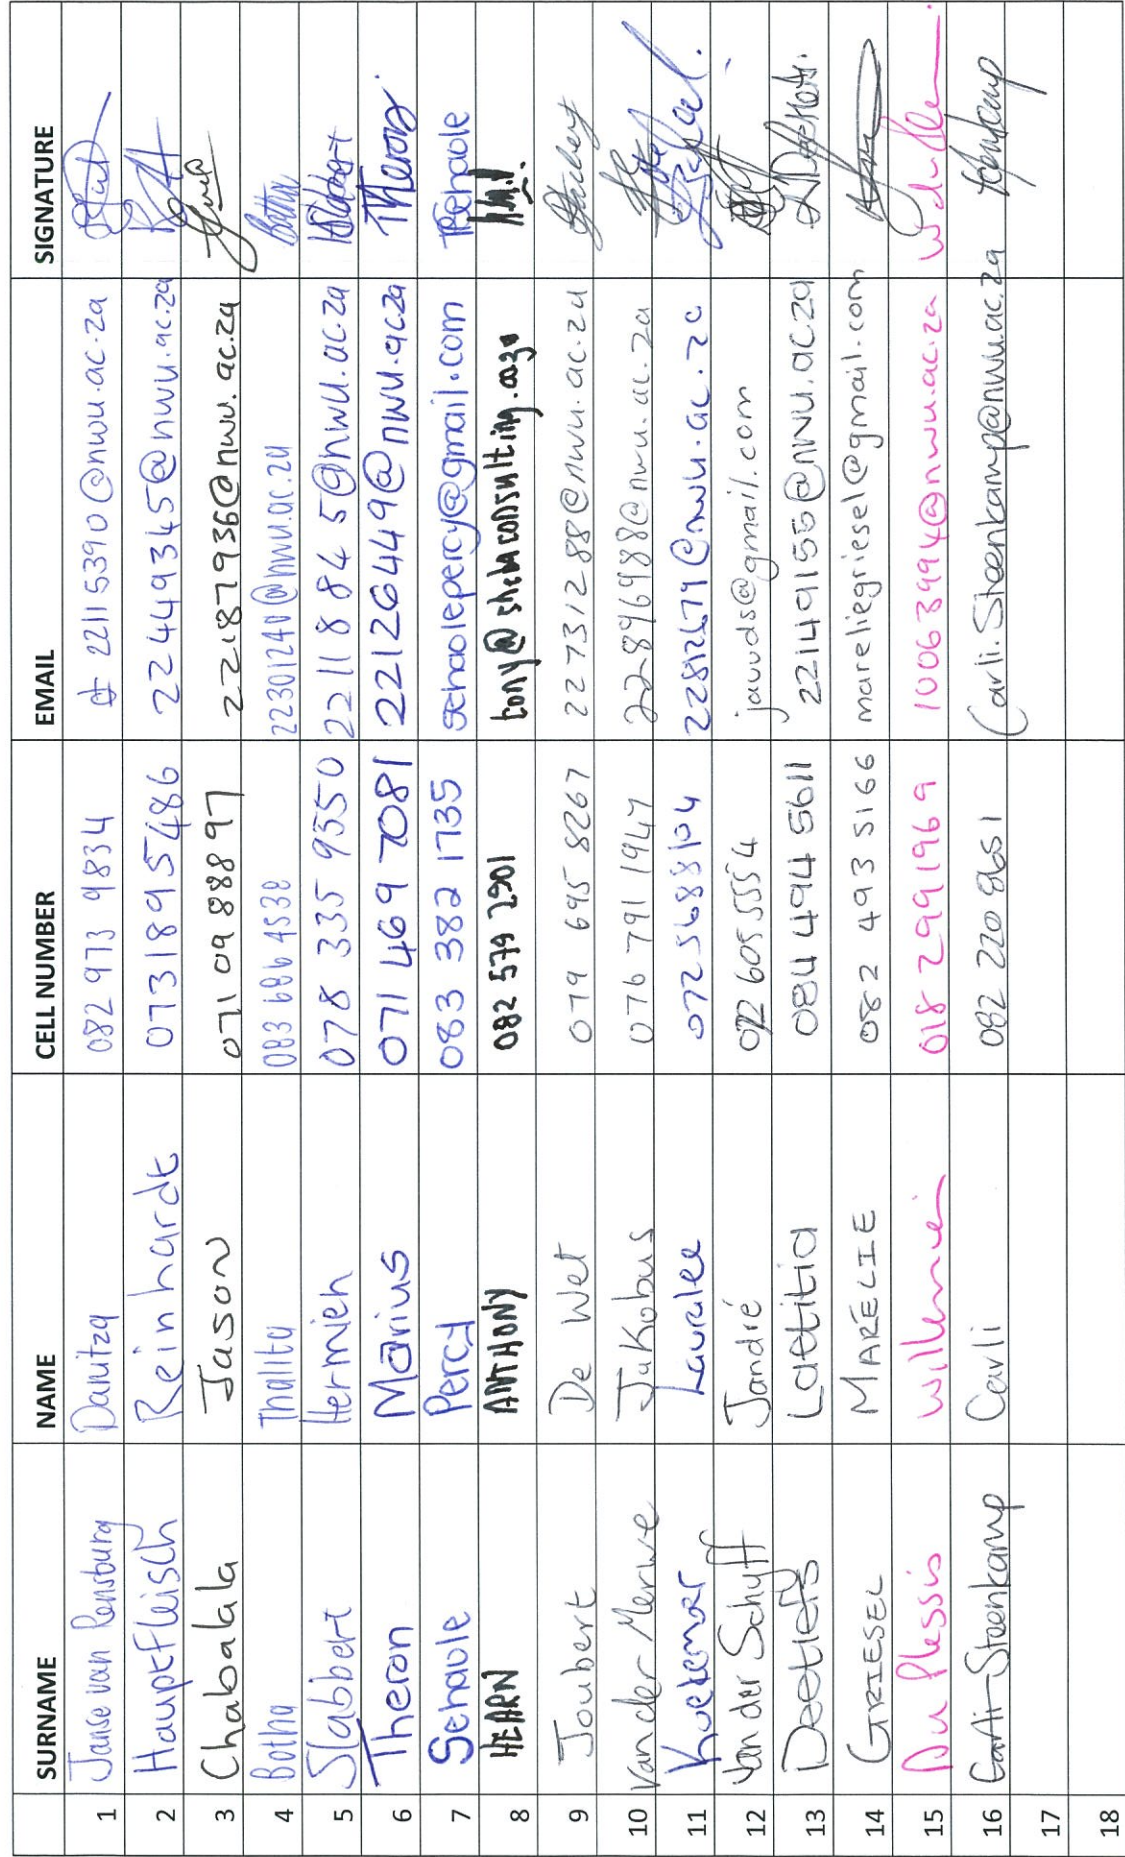 SURNAME NAME CELL NUMBER EMAIL SIGNATURE
1 Janse van Rensburg Danitza 082 973 9834 22115390@nwu.ac.za
2 Hauptfleisch Reinhardt 0731895486 22449345@nwu.ac.za
3 Chabalala Jason 071 09 888 97 22187936@nwu.ac.za
4 Botha Thalita 083 686 4538 22301240@nwu.ac.za Botha
5 Slabbert Hermien 078 335 9550 22118845@nwu.ac.za Slabbert
6 Theron Marius 071 469 7081 22126449@nwu.ac.za Theron
7 Sehaole Percy 083 382 1735 sehaolepercy@gmail.com Sehaole
8 HEARN ANTHONY 082 579 2901 tony@shebaconsulting.co.za
9 Joubert De Wet 079 695 8267 22731288@nwu.ac.za
10 Van der Merwe Jakobus 076 791 1947 22896988@nwu.ac.za
11 Lauralee 0725688104 22812679@nwu.ac.za
12 Van der Schyff Jandré 072 605 5554 jauvds@gmail.com
13 Deetlefs Laetitia 084 494 5611 22149155@nwu.ac.za
14 GRIESEL MARÉLIE 082 493 5166 mareliegriesel@gmail.com
15 Du Plessis Willemien 018 2991969 10063994@nwu.ac.za
16 Steenkamp Carli 082 220 8651 Carli.Steenkamp@nwu.ac.za Steenkamp
17
18